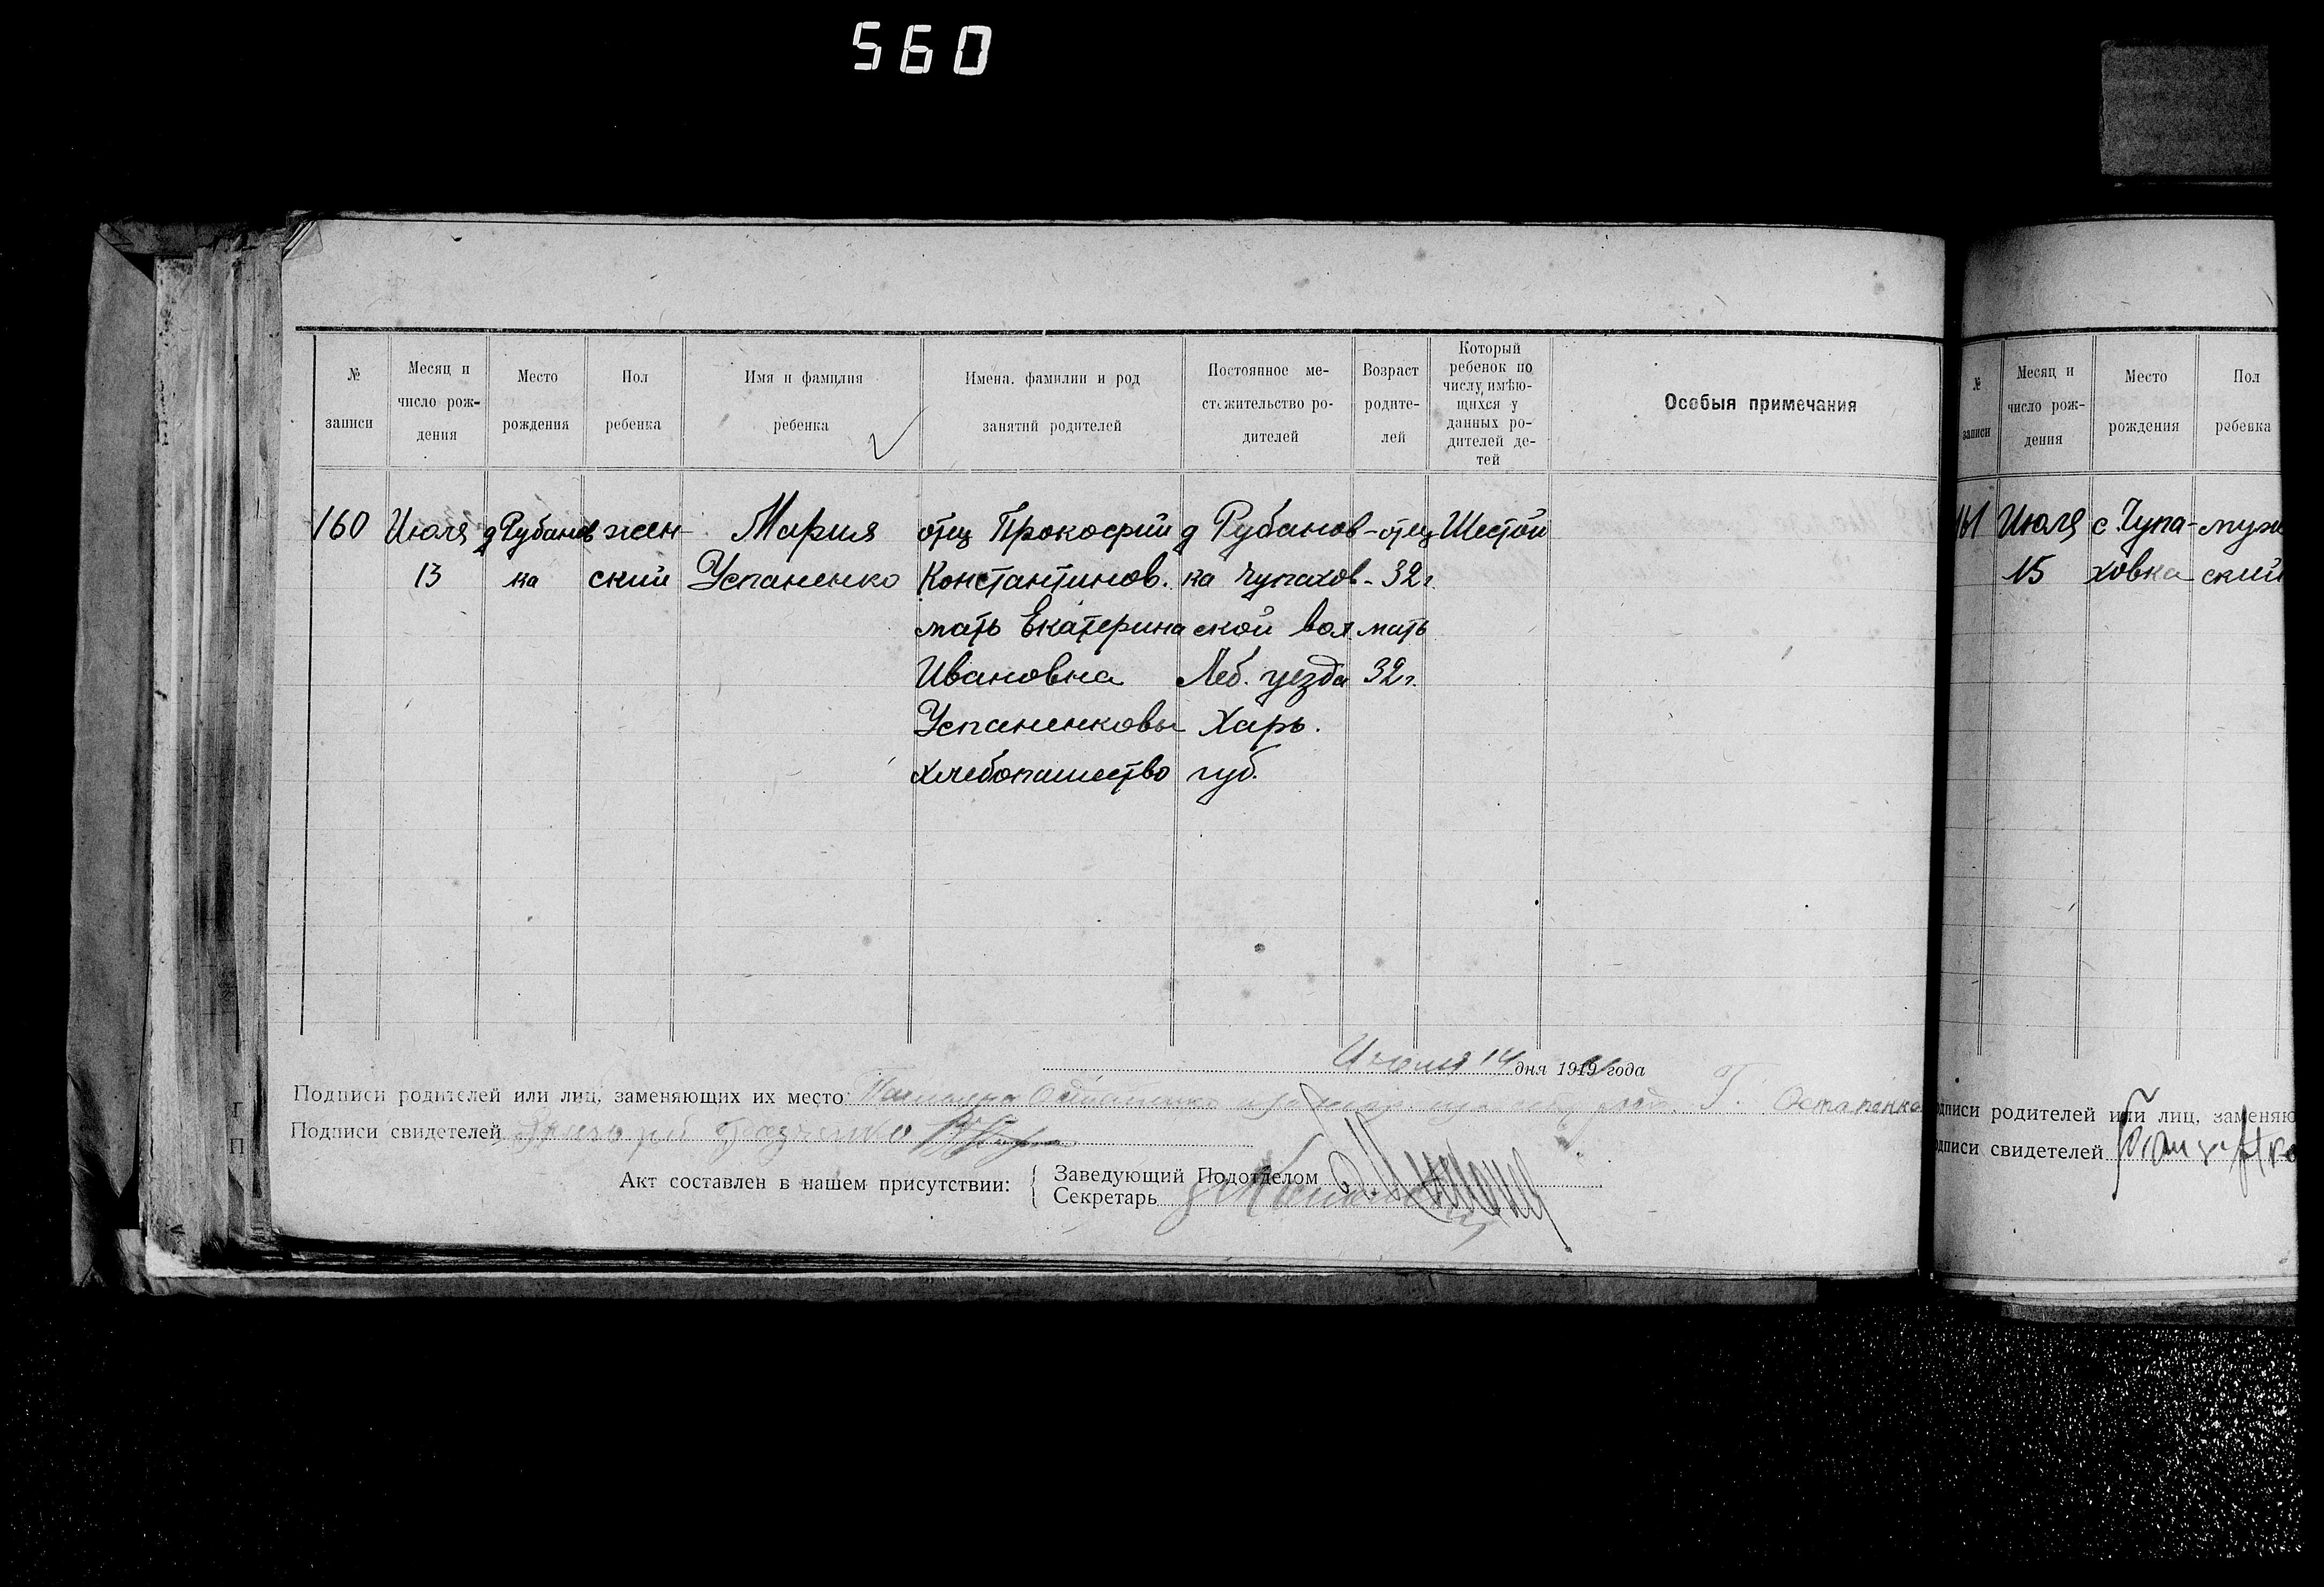 560
№ записи
Месяц и число рождения
Место рождения
Пол ребенка
Имя и фамилия ребенка
Имена, фамилии и род занятий родителей
Постоянное местожительство родителей
Возраст родителей
Который ребенок по числу имѣющихся у данных родителей детей
Особыя примечания
160 Июля д Рубанов жен- Мария отец Прокофий д Рубанов- отец Шестой
13 ка ский Успаненко Константинов. ка Чупахов- 32 г.
мать Екатерина ской вол. мать
Ивановна Леб. уезда 32 г.
Успаненковы Харь.
хлебопашество губ.
Июля 14 дня 19 года
Подписи родителей или лиц, заменяющих их место: Г. Остапенко
Подписи свидетелей
Акт составлен в нашем присутствии:
Заведующий Подотделом
Секретарь
№ записи
Месяц и число рождения
Место рождения
Пол ребенка
161 Июля с. Чупа- муж
15 ховка ский
одписи родителей или лиц, заменяю
одписи свидетелей